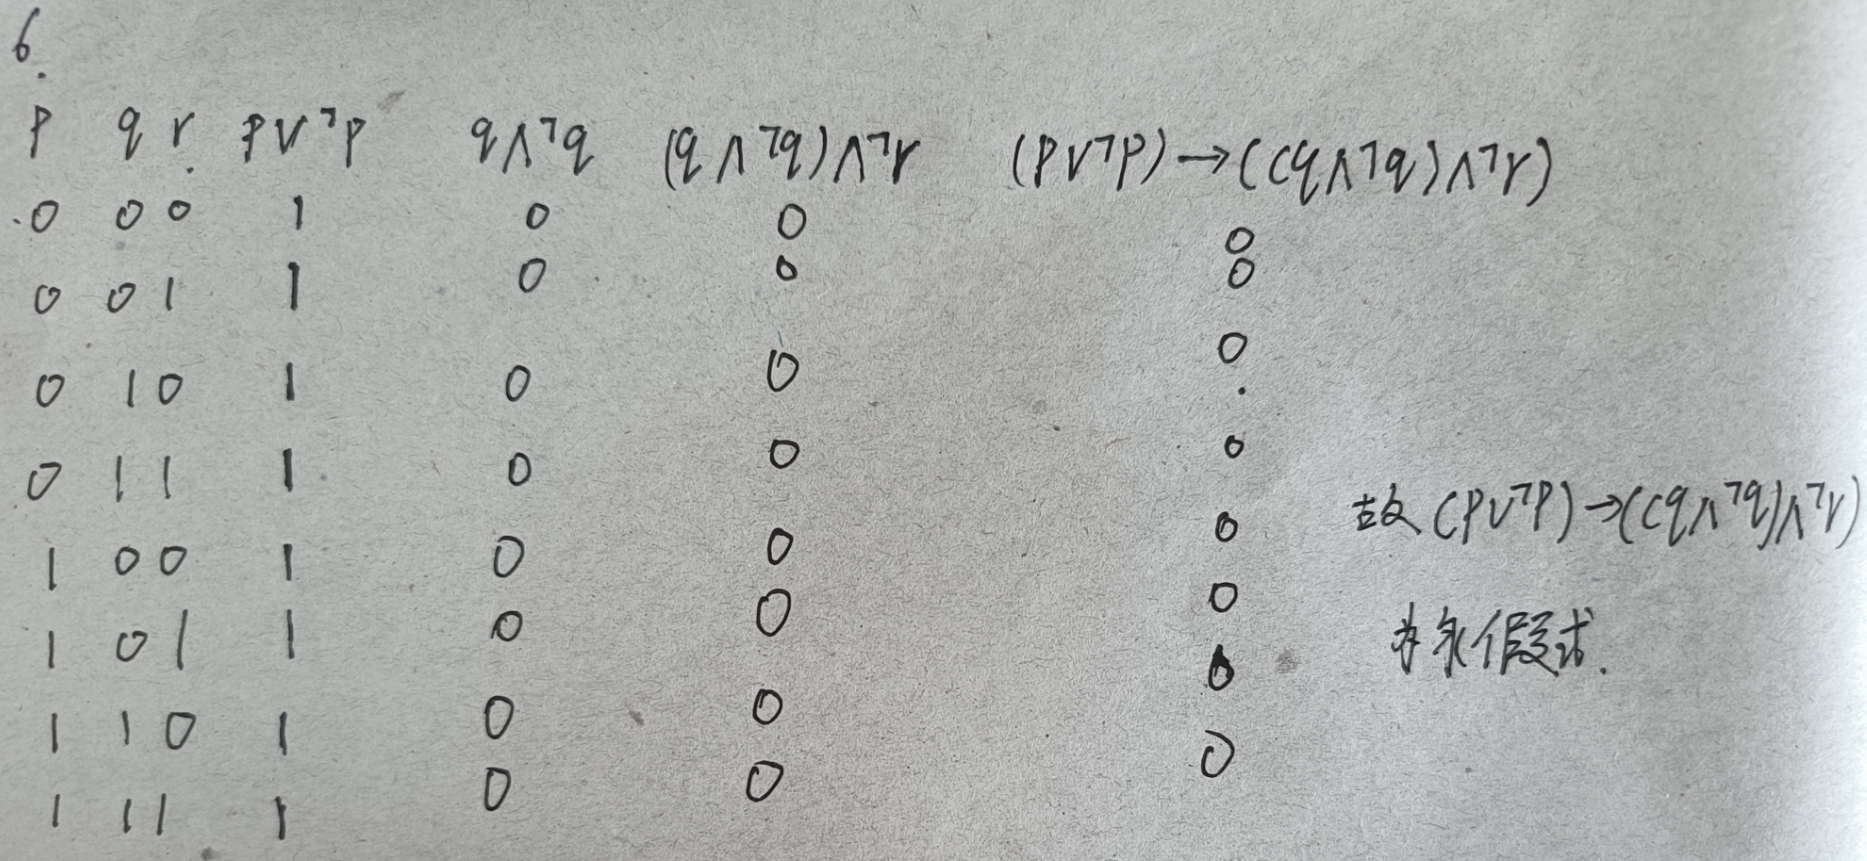 6.
p q r p∨¬p q∧¬q (q∧¬q)∧¬r (p∨¬p)→((q∧¬q)∧¬r)
0 0 0 1 0 0 0
0 0 1 1 0 0 0
0 1 0 1 0 0 0
0 1 1 1 0 0 0
1 0 0 1 0 0 0
1 0 1 1 0 0 0
1 1 0 1 0 0 0
1 1 1 1 0 0 0
故(p∨¬p)→((q∧¬q)∧¬r)
为永假式.